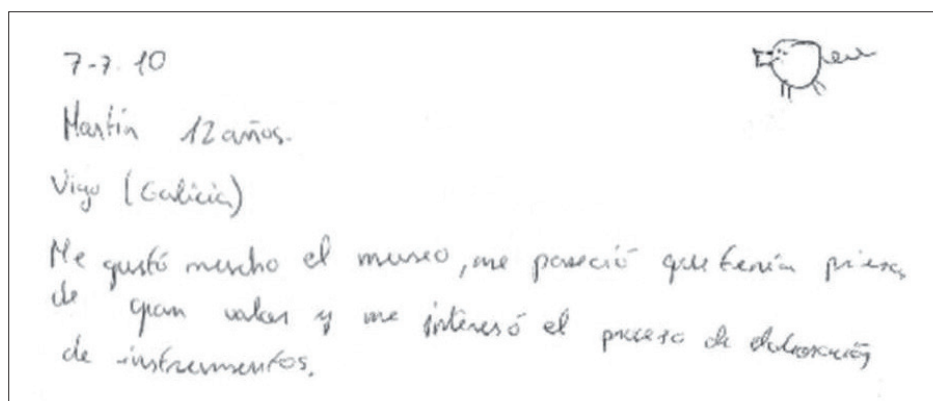 7-7-10
Martín 12 años.
Vigo (Galicia)
Me gustó mucho el museo, me pareció que tenía piezas
de gran valor y me interesó el proceso de elaboración
de instrumentos.